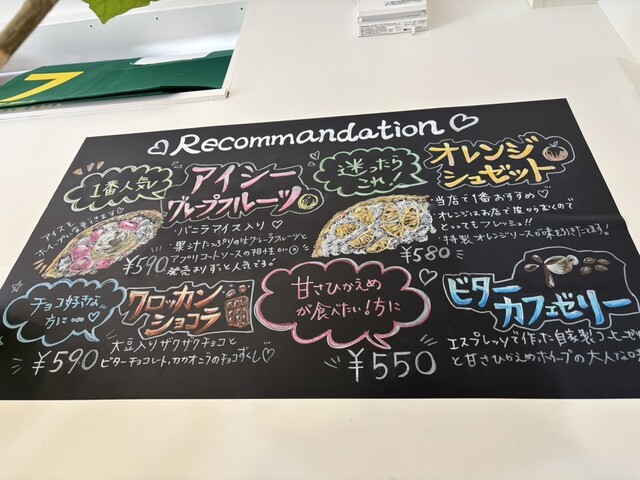 Recommandation
1番人気!
アイシー
グレープフルーツ
バニラアイス入り♡
果汁たっぷりのグレープフルーツと
アプリコットソースの相性が◎
発売よりずっと人気です!
¥590
迷ったら
これ!
オレンジ
シュゼット
当店で1番おすすめ♡
オレンジはお店で皮からむくので
とってもフレッシュ!!
特製オレンジソースが味を引きたてます!
¥580
チョコ好きな
方に…♡
クロッカン
ショコラ
大豆入りザクザクチョコと
ビターチョコレート、カカオニブのチョコづくし♡
¥590
甘さひかえめ
が食べたい!方に
¥550
ビター
カフェゼリー
エスプレッソで作った自家製コーヒーゼリー
と甘さひかえめホイップの大人な味